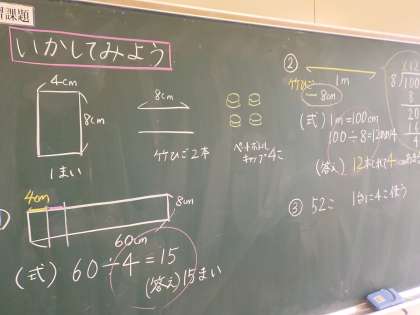 習課題
いかしてみよう
4cm
8cm
1まい
8cm
竹ひご2本
ペットボトル
キャップ4こ
4cm
8cm
60cm
(式) 60÷4=15
(答え)15まい
②
1m
竹ひご
8cm
(式) 1m=100cm
100÷8=12あまり4
(答え) 12本とれて4cmあまる
12
8)100
8
20
4
③ 52こ